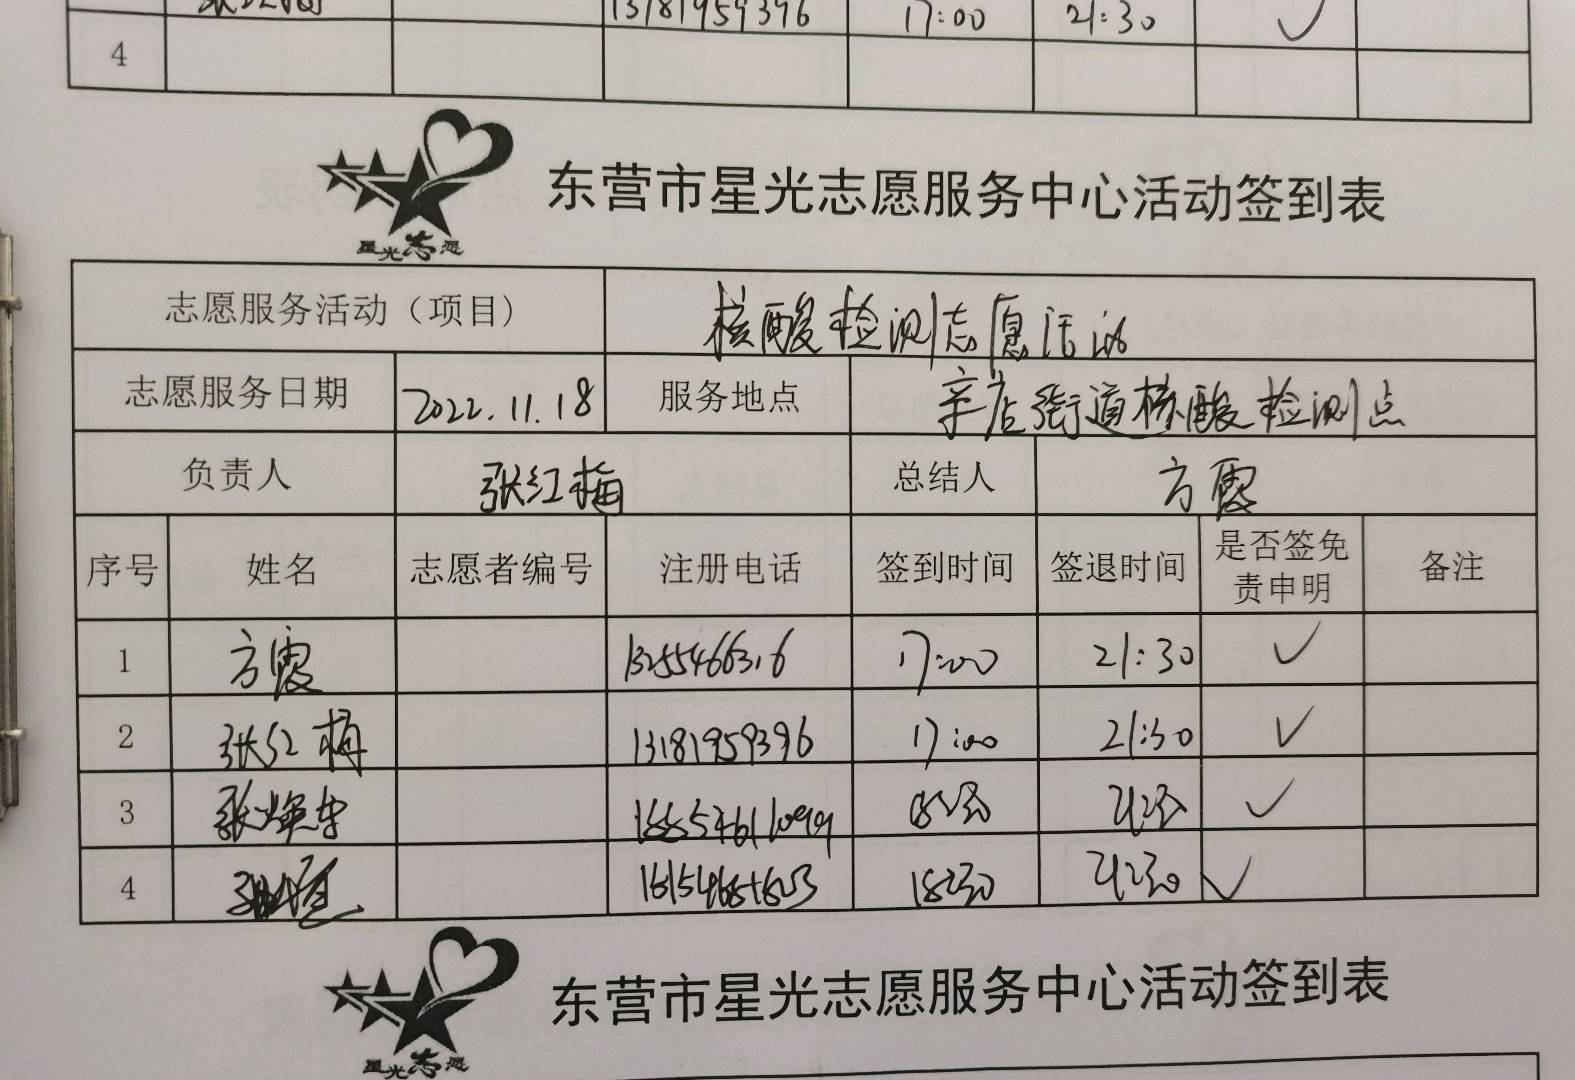 13181959396 17:00 21:30 ✓
4
星光志愿
东营市星光志愿服务中心活动签到表
志愿服务活动（项目） 核酸检测志愿活动
志愿服务日期 2022.11.18 服务地点 辛店街道核酸检测点
负责人 张红梅 总结人 方霞
序号 姓名 志愿者编号 注册电话 签到时间 签退时间 是否签免责申明 备注
1 方霞 13255466316 17:00 21:30 ✓
2 张红梅 13181959396 17:00 21:30 ✓
3 ✓
4 18:30 21:30 ✓
星光志愿
东营市星光志愿服务中心活动签到表